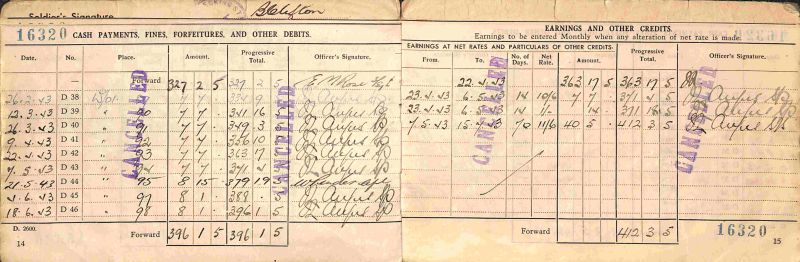 Soldier's Signature
B Clifton
16320 CASH PAYMENTS, FINES, FORFEITURES, AND OTHER DEBITS.
Date. No. Place. Amount. Progressive Total. Officer's Signature.
Forward 327 2 5 327 2 5
26.2.43 D 38 7 7 334 9 5
12.3.43 D 39 " 90 7 7 341 16 5
26.3.43 D 40 " 91 7 7 349 3 5
9.4.43 D 41 " 92 7 7 356 10 5
22.4.43 D 42 " 93 7 7 363 17 5
7.5.43 D 43 " 94 7 7 371 4 5
21.5.43 D 44 " 95 8 15 379 19 5
4.6.43 D 45 " 97 8 1 388 . 5
18.6.43 D 46 " 98 8 1 396 1 5
CANCELLED
CANCELLED
D. 2600.
Forward 396 1 5 396 1 5
14
EARNINGS AND OTHER CREDITS.
Earnings to be entered Monthly when any alteration of net rate is made.
EARNINGS AT NET RATES AND PARTICULARS OF OTHER CREDITS.
From. To. No. of Days. Net Rate. Amount. Progressive Total. Officer's Signature.
22.4.43 363 17 5 363 17 5
23.4.43 6.5.43 14 10/6 7 7 371 4 5
23.4.43 6.5.43 14 1/- 14 371 18 5
7.5.43 15.4.43 70 11/6 40 5 412 3 5
CANCELLED
CANCELLED
Forward 412 3 5
16320
15